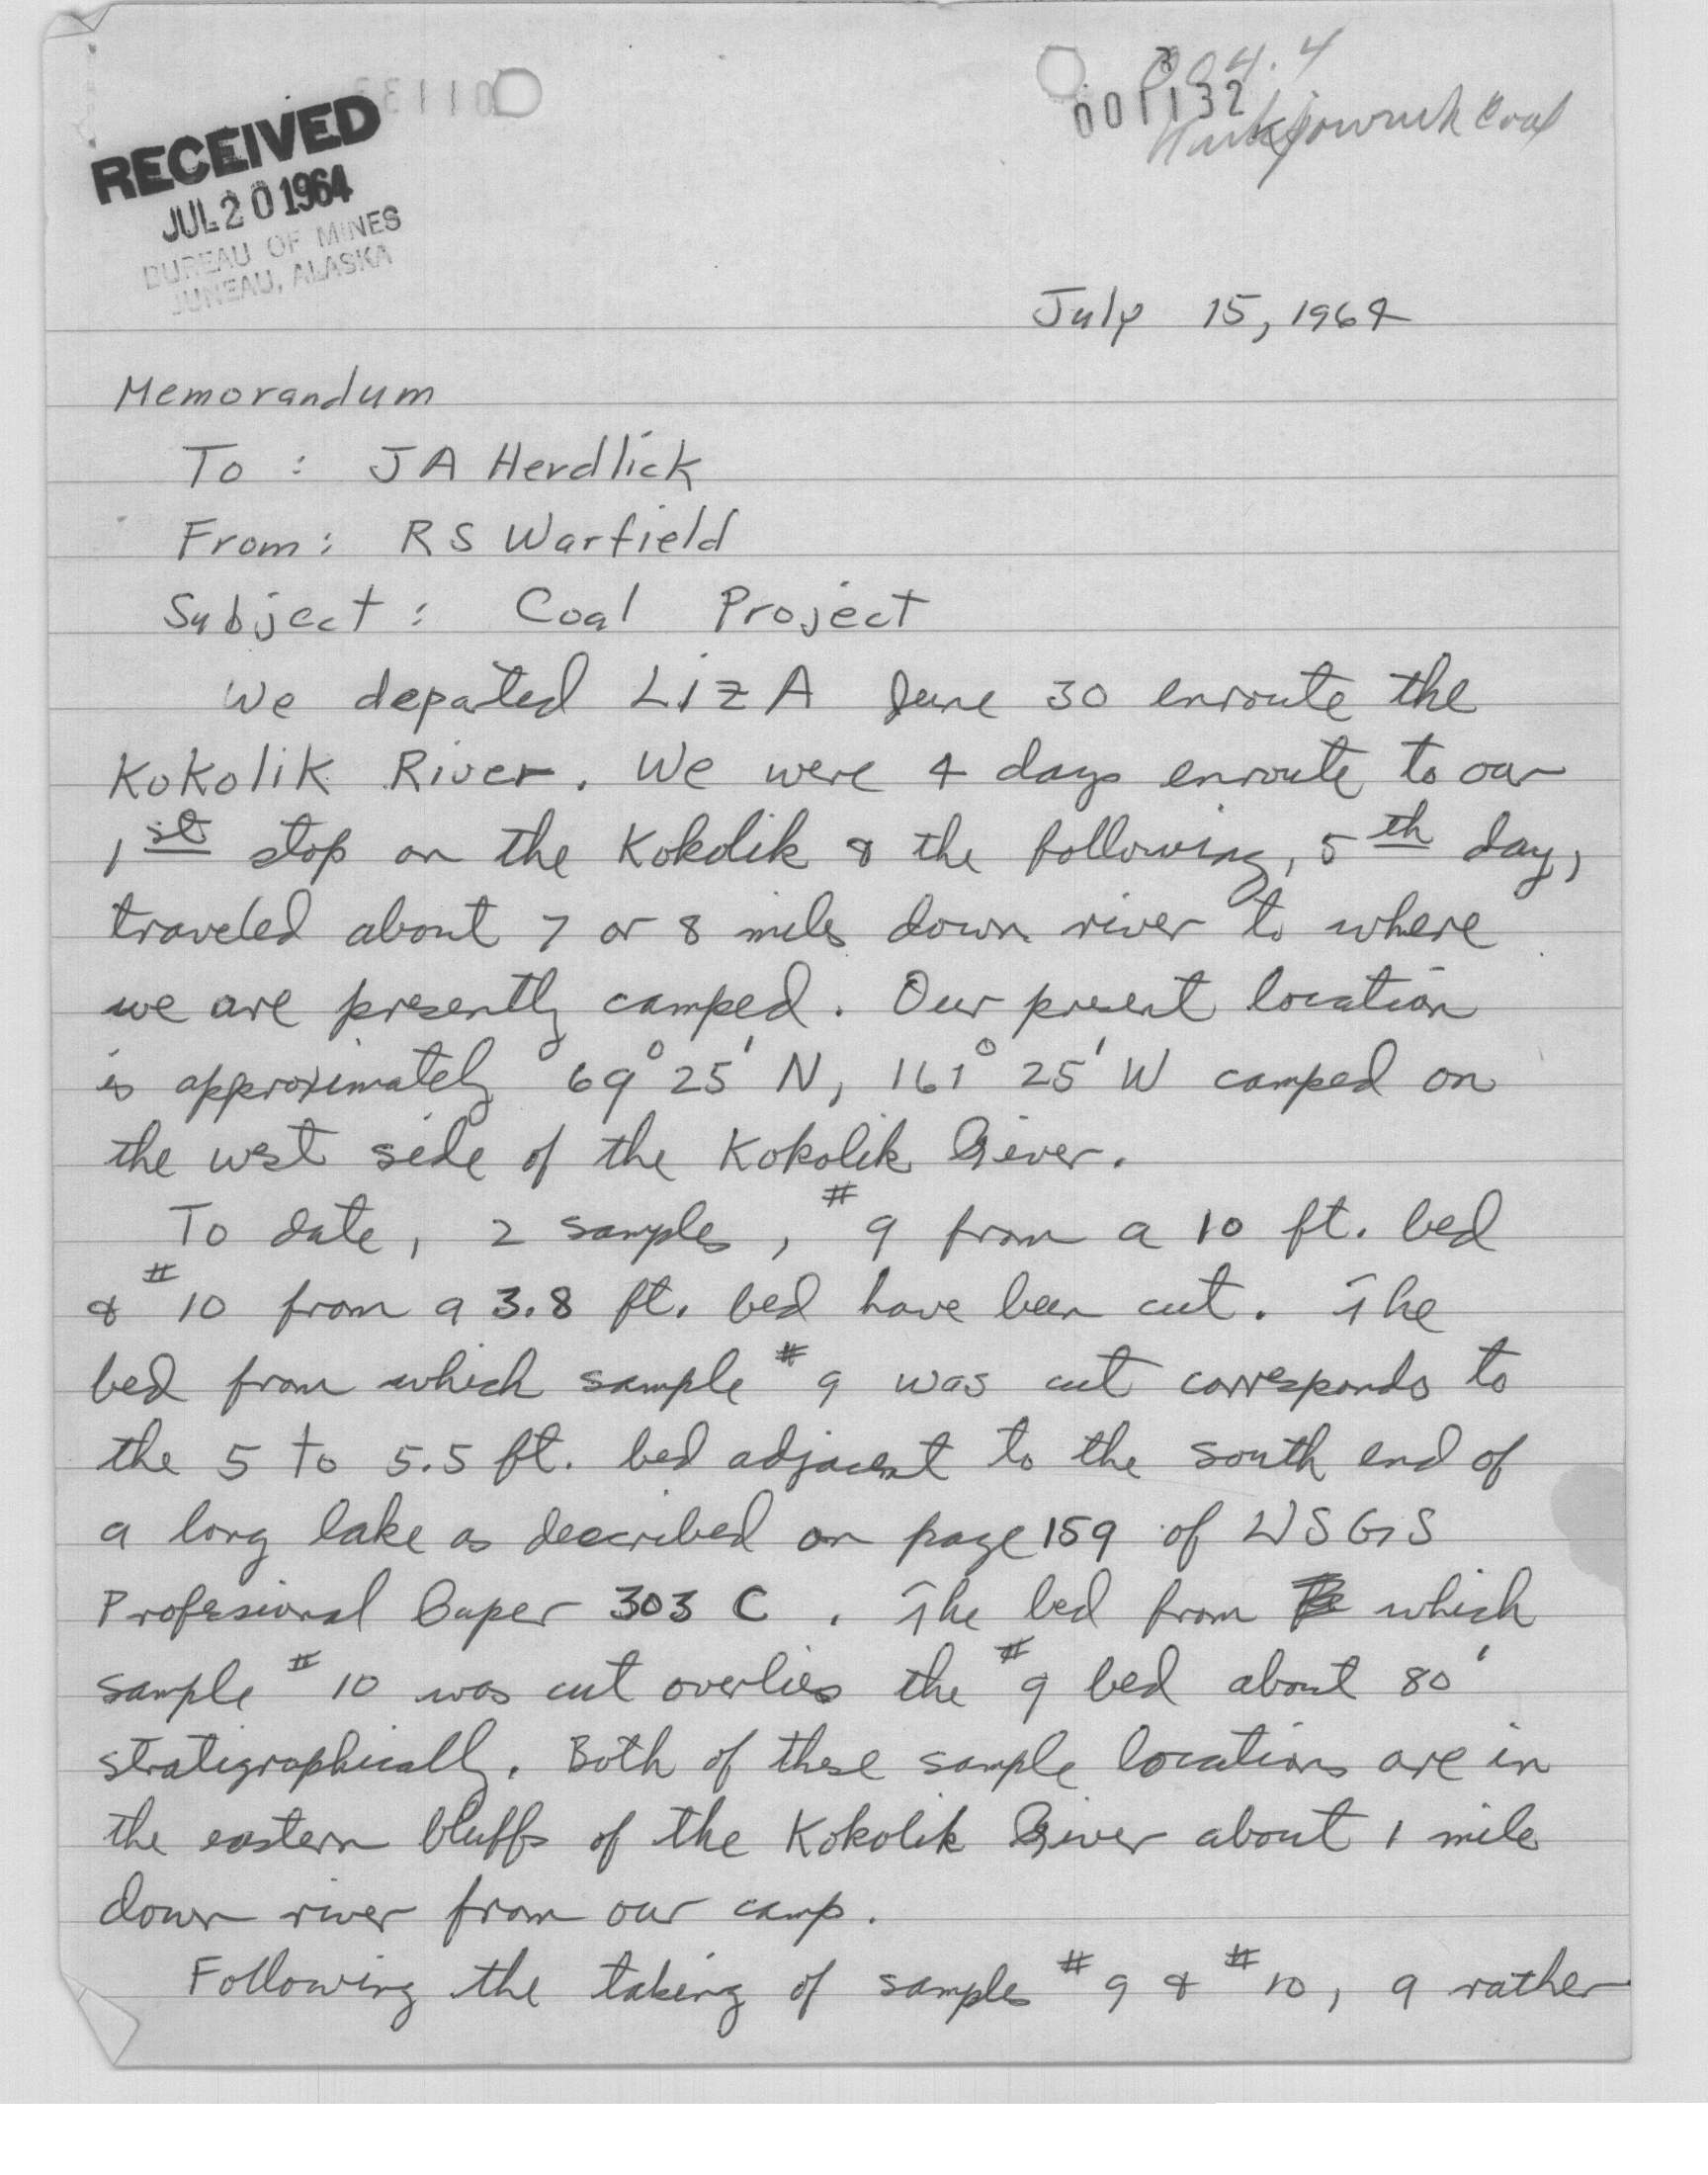 RECEIVED
JUL 20 1964
BUREAU OF MINES
JUNEAU, ALASKA
001132
Coal
July 15, 1964
Memorandum
To : J A Herdlick
From : R S Warfield
Subject : Coal Project
We depated LIZ A June 30 enroute the
Kokolik River. We were 4 days enroute to our
1st stop on the Kokolik & the following, 5th day,
traveled about 7 or 8 miles down river to where
we are presently camped. Our present location
is approximately 69° 25' N, 161° 25' W camped on
the west side of the Kokolik River.
To date, 2 samples, #9 from a 10 ft. bed
& #10 from a 3.8 ft. bed have been cut. The
bed from which sample #9 was cut corresponds to
the 5 to 5.5 ft. bed adjacent to the south end of
a long lake as described on page 159 of USGS
Profesional Paper 303 C. The bed from which
sample #10 was cut overlies the #9 bed about 80'
stratigraphically. Both of these sample locations are in
the eastern bluffs of the Kokolik River about 1 mile
down river from our camp.
Following the taking of samples #9 & #10, a rather